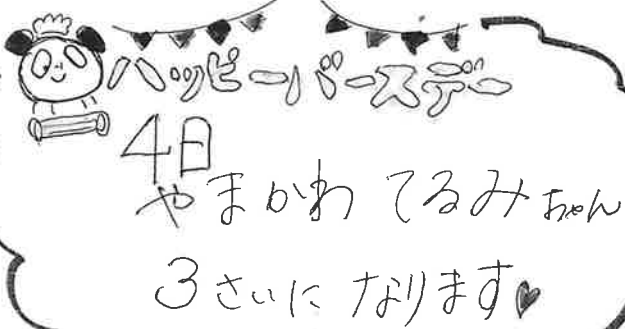 ハッピーバースデー
4日
やまかわ てるみちゃん
3さいに なります♥